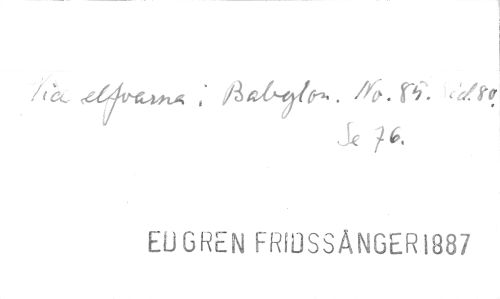 Via elfvarna i Babylon. No. 85. Sid. 80.
Se 76.
EDGREN FRIDSSÅNGER 1887